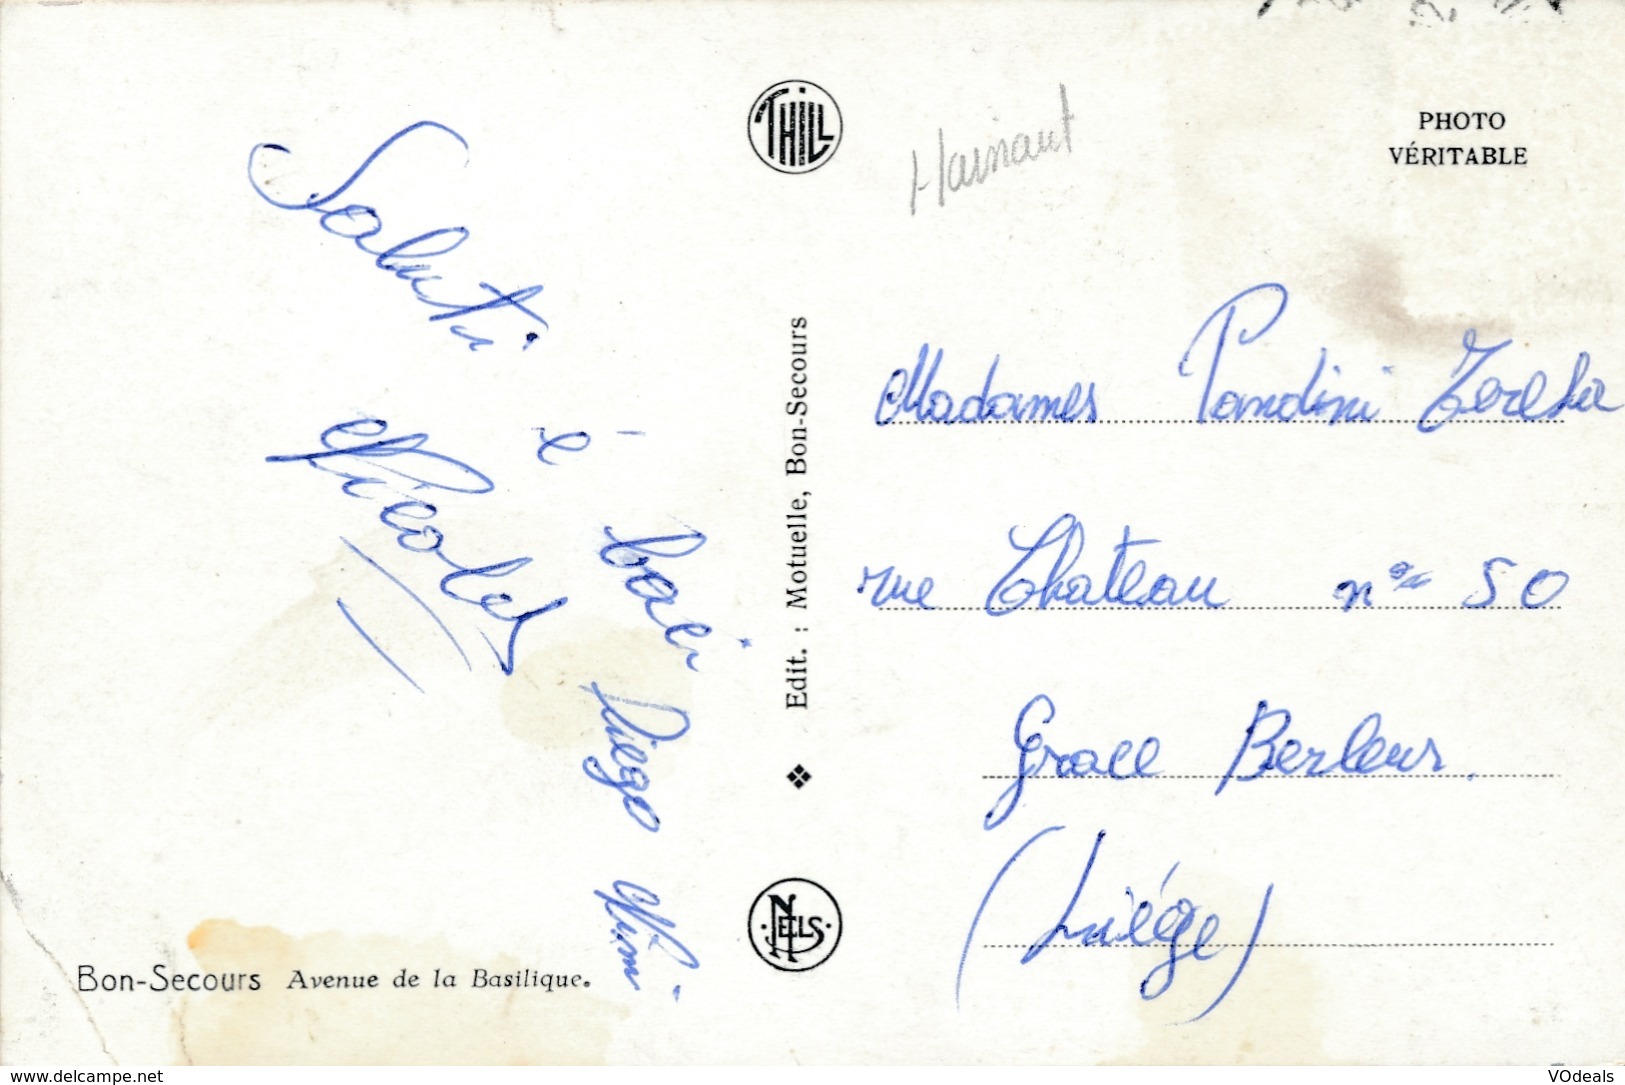 THILL
PHOTO
VÉRITABLE
Hainaut
Saluti
è baci
Diego Mimi
Nicoles
Edit. : Motuelle, Bon-Secours
NELS
Madames Pandini Teresa
rue Chateau n° 50
Grace Berleur.
(Liége)
Bon-Secours Avenue de la Basilique.
www.delcampe.net
VOdeals